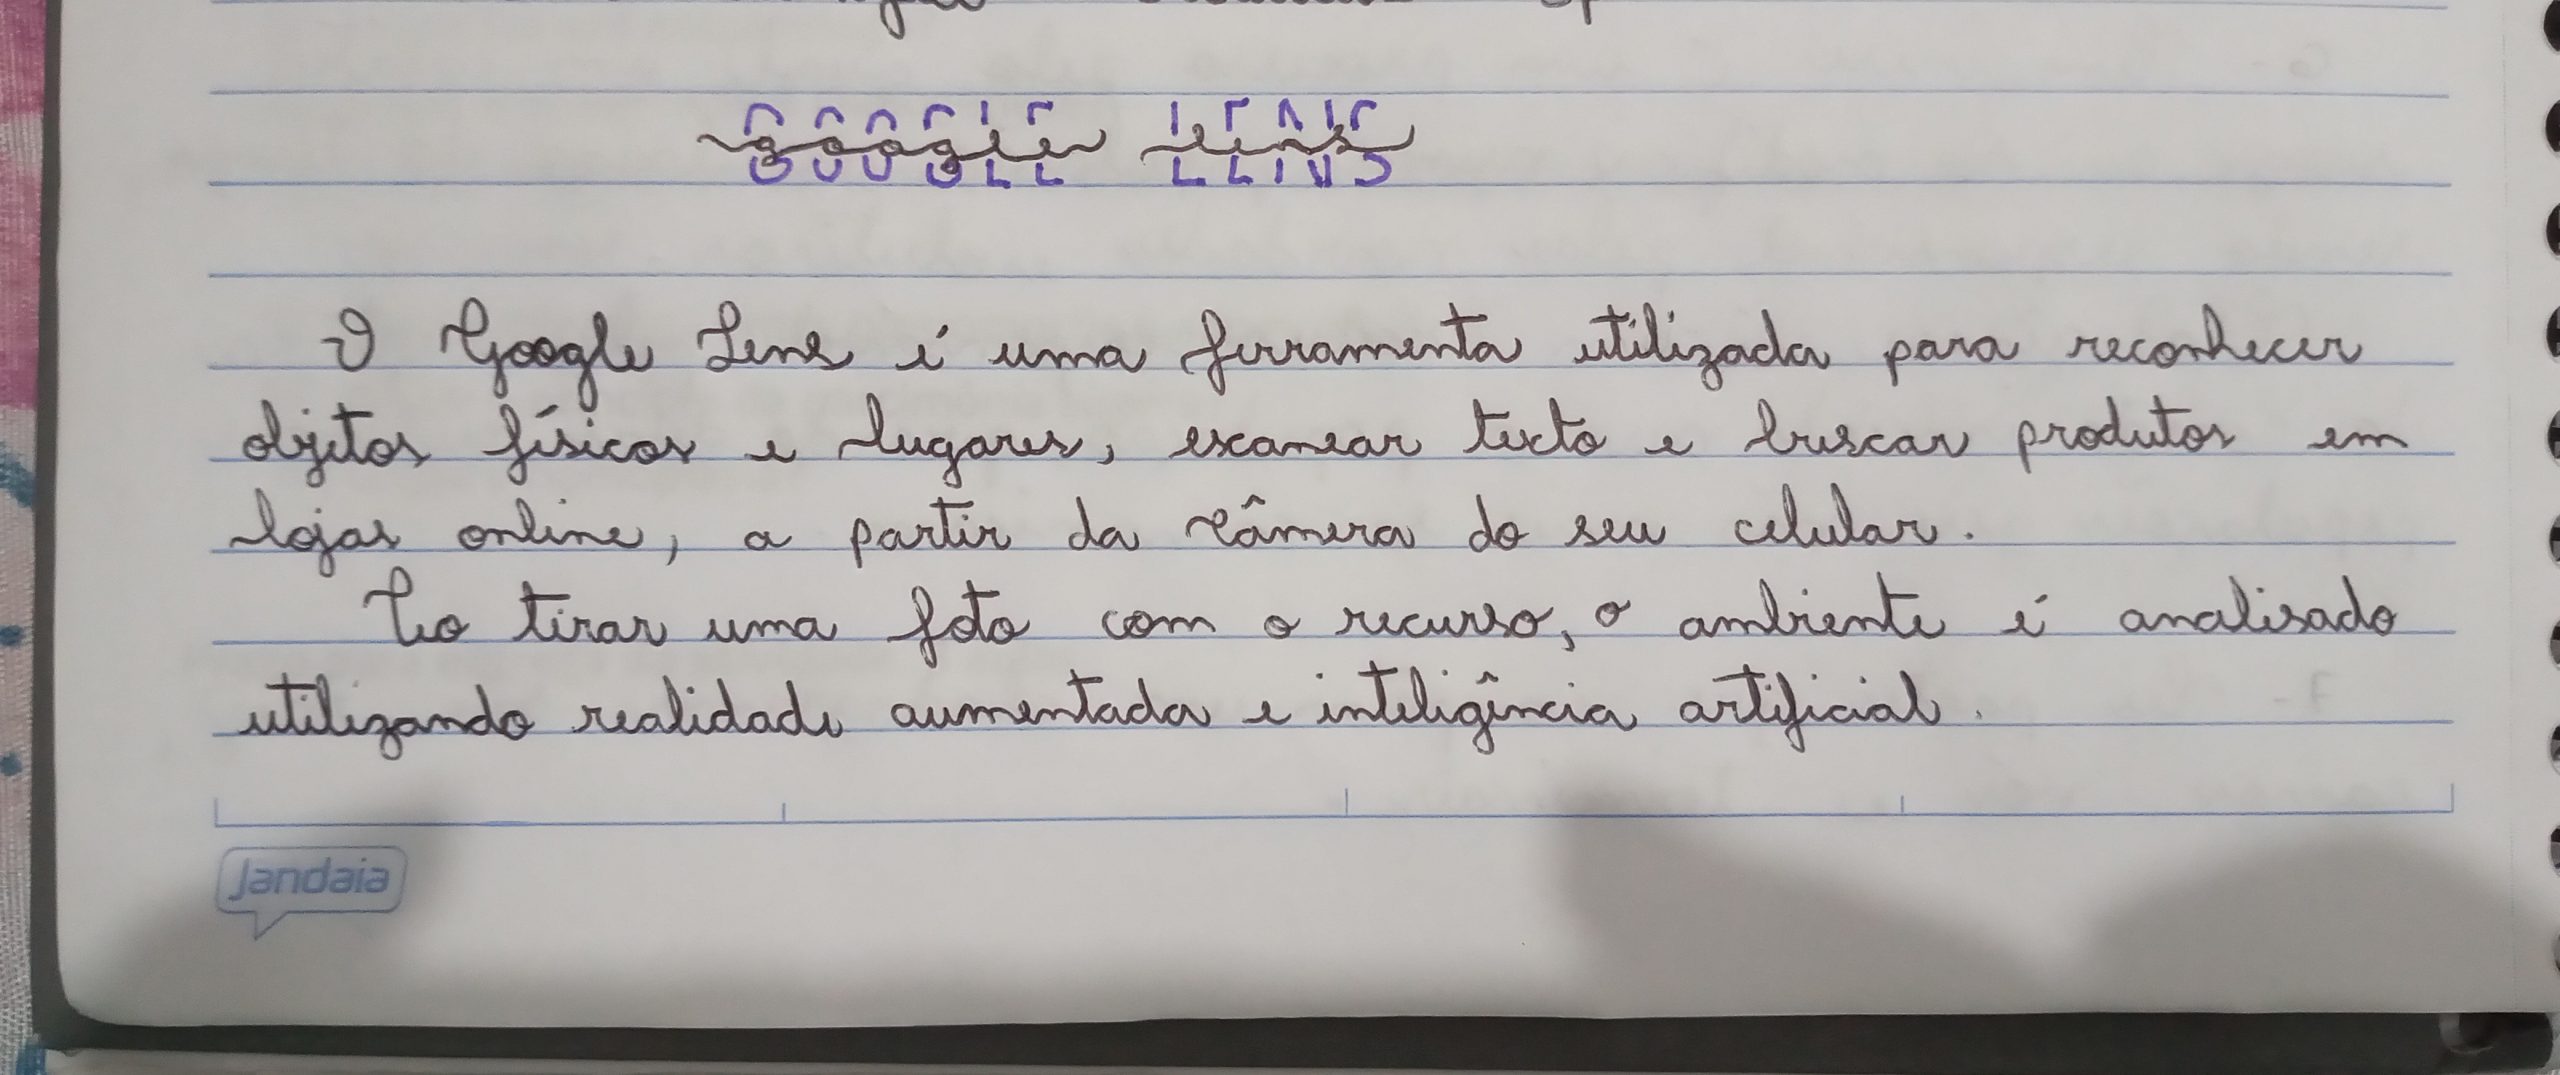 google lens
O Google Lens é uma ferramenta utilizada para reconhecer
objetos físicos e lugares, escanear texto e buscar produtos em
lojas online, a partir da câmera do seu celular.
Ao tirar uma foto com o recurso, o ambiente é analisado
utilizando realidade aumentada e inteligência artificial.
Jandaia